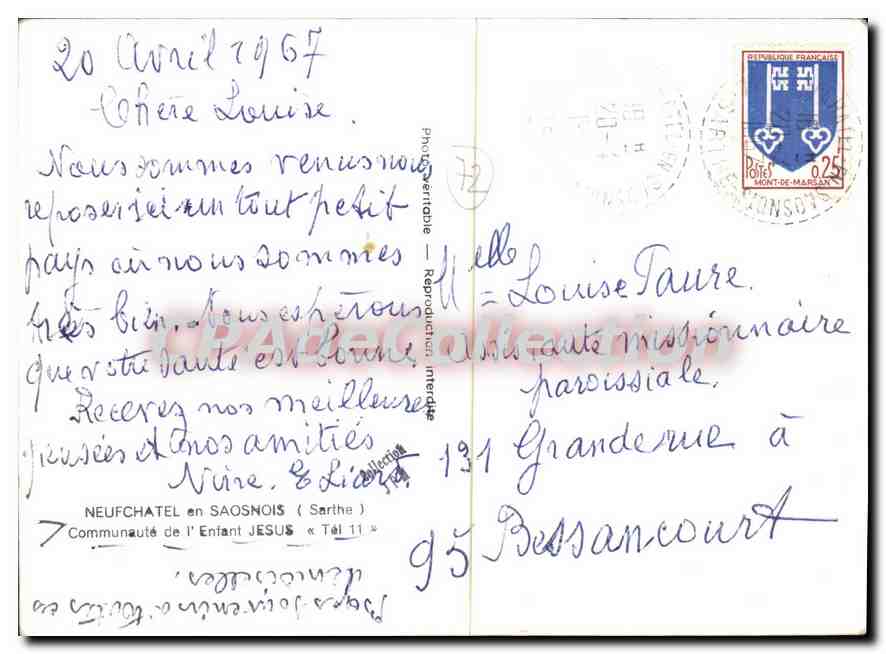 20 Avril 1967
Chère Louise.
Nous sommes venus nous
reposer ici un tout petit
pays où nous sommes
très bien. Nous espérons
que votre santé est bonne
Recevez nos meilleures
pensées et nos amitiés
NEUFCHATEL en SAOSNOIS ( Sarthe )
Communauté de l' Enfant JESUS « Tél 11 »
Bons souvenirs à toutes ces
demoiselles.
Photo véritable — Reproduction interdite
Collection
72
REPUBLIQUE FRANÇAISE
POSTES 0,25
MONT-DE-MARSAN
Melle Louise Faure.
assistante missionnaire
paroissiale.
131 Grande rue à
95 Bessancourt
CPAdeCollection